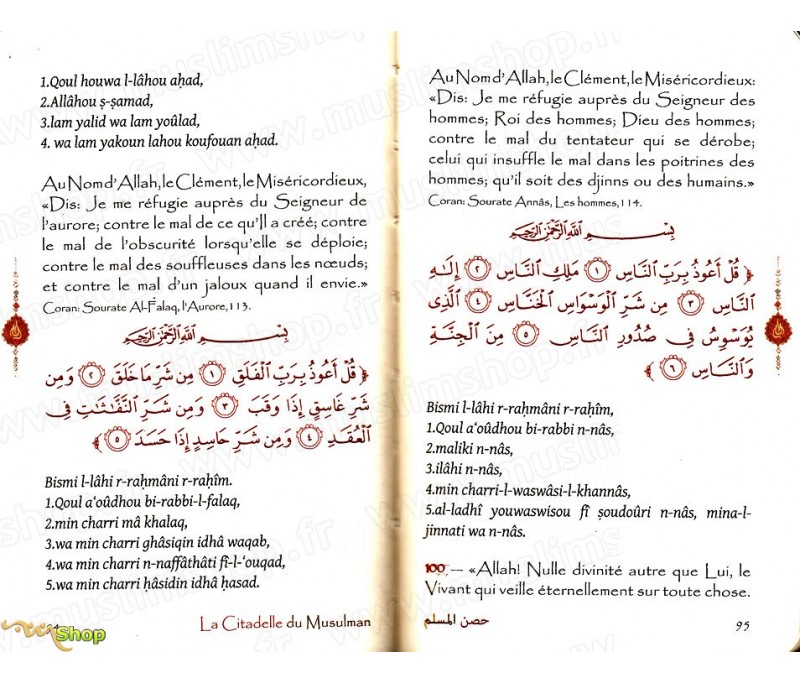 1.Qoul houwa l-lâhou aḥad,
2.Allâhou ṣ-ṣamad,
3.lam yalid wa lam yoûlad,
4. wa lam yakoun lahou koufouan aḥad.
Au Nom d'Allah, le Clément, le Miséricordieux,
«Dis: Je me réfugie auprès du Seigneur de
l'aurore; contre le mal de ce qu'Il a créé; contre
le mal de l'obscurité lorsqu'elle se déploie;
contre le mal des souffleuses dans les nœuds;
et contre le mal d'un jaloux quand il envie.»
Coran: Sourate Al-Falaq, l'Aurore,113.
بِسْمِ ٱللَّهِ ٱلرَّحْمَٰنِ ٱلرَّحِيمِ
﴿ قُلْ أَعُوذُ بِرَبِّ ٱلْفَلَقِ ١ مِن شَرِّ مَا خَلَقَ ٢ وَمِن
شَرِّ غَاسِقٍ إِذَا وَقَبَ ٣ وَمِن شَرِّ ٱلنَّفَّٰثَٰتِ فِى
ٱلْعُقَدِ ٤ وَمِن شَرِّ حَاسِدٍ إِذَا حَسَدَ ٥ ﴾
Bismi l-lâhi r-raḥmâni r-raḥîm.
1.Qoul a'oûdhou bi-rabbi-l-falaq,
2.min charri mâ khalaq,
3.wa min charri ghâsiqin idhâ waqab,
4.wa min charri n-naffâthâti fî-l-'ouqad,
5.wa min charri ḥâsidin idhâ ḥasad.
La Citadelle du Musulman
Shop
Au Nom d'Allah, le Clément, le Miséricordieux:
«Dis: Je me réfugie auprès du Seigneur des
hommes; Roi des hommes; Dieu des hommes;
contre le mal du tentateur qui se dérobe;
celui qui insuffle le mal dans les poitrines des
hommes; qu'il soit des djinns ou des humains.»
Coran: Sourate Annâs, Les hommes,114.
بِسْمِ ٱللَّهِ ٱلرَّحْمَٰنِ ٱلرَّحِيمِ
﴿ قُلْ أَعُوذُ بِرَبِّ ٱلنَّاسِ ١ مَلِكِ ٱلنَّاسِ ٢ إِلَٰهِ
ٱلنَّاسِ ٣ مِن شَرِّ ٱلْوَسْوَاسِ ٱلْخَنَّاسِ ٤ ٱلَّذِى
يُوَسْوِسُ فِى صُدُورِ ٱلنَّاسِ ٥ مِنَ ٱلْجِنَّةِ
وَٱلنَّاسِ ٦ ﴾
Bismi l-lâhi r-raḥmâni r-raḥîm,
1.Qoul a'oûdhou bi-rabbi n-nâs,
2.maliki n-nâs,
3.ilâhi n-nâs,
4.min charri-l-waswâsi-l-khannâs,
5.al-ladhî youwaswisou fî ṣoudoûri n-nâs, mina-l-
jinnati wa n-nâs.
100 — «Allah! Nulle divinité autre que Lui, le
Vivant qui veille éternellement sur toute chose.
حصن المسلم
95
www.muslimshop.fr